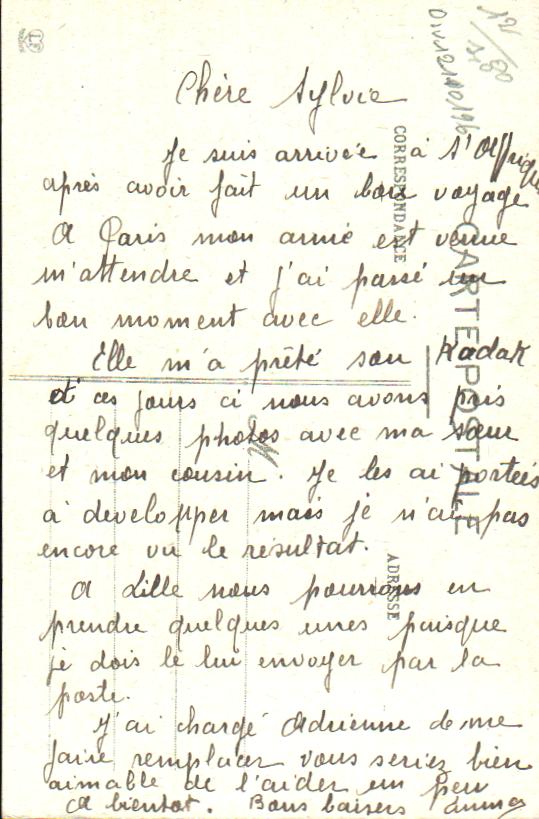 Chère Sylvie
Je suis arrivée à St Affrique
après avoir fait un bon voyage
A Paris mon amie est venue
m'attendre et j'ai passé un
bon moment avec elle.
Elle m'a prêté son Kodak
et ces jours ci nous avons pris
quelques photos avec ma sœur
et mon cousin. Je les ai portées
à developper mais je n'ai pas
encore vu le résultat.
A Lille nous pourrons en
prendre quelques unes puisque
je dois le lui envoyer par la
poste.
J'ai chargé Adrienne de me
faire remplacer vous seriez bien
aimable de l'aider un peu
A bientot. Bons baisers
CORRESPONDANCE
CARTE POSTALE
ADRESSE